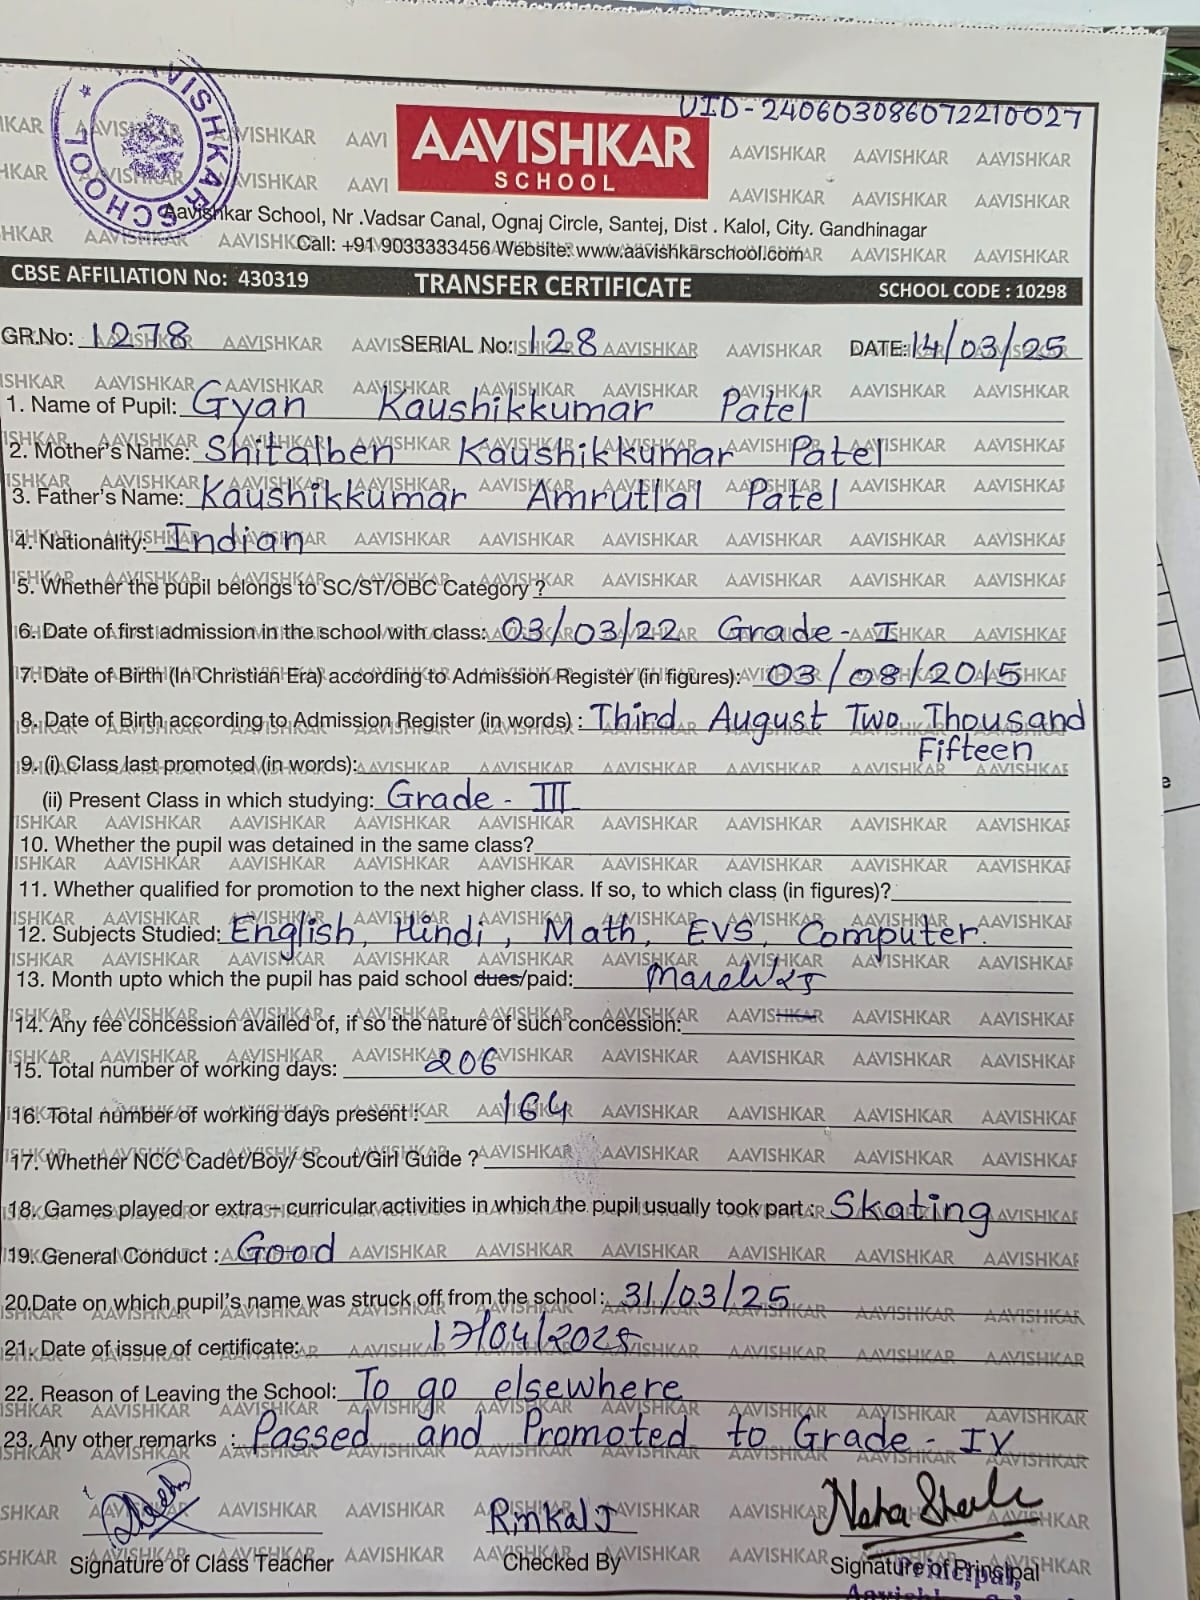 UID-240603086072210027
AAVISHKAR
SCHOOL
AAVISHKAR SCHOOL
Aavishkar School, Nr .Vadsar Canal, Ognaj Circle, Santej, Dist . Kalol, City. Gandhinagar
Call: +91 9033333456 Website: www.aavishkarschool.com
CBSE AFFILIATION No: 430319 TRANSFER CERTIFICATE SCHOOL CODE : 10298
GR.No: 1278 SERIAL No: 128 DATE: 14/03/25
1. Name of Pupil: Gyan Kaushikkumar Patel
2. Mother's Name: Shitalben Kaushikkumar Patel
3. Father's Name: Kaushikkumar Amrutlal Patel
4. Nationality: Indian
5. Whether the pupil belongs to SC/ST/OBC Category ?
6. Date of first admission in the school with class: 03/03/22 Grade - I
7. Date of Birth (In Christian Era) according to Admission Register (in figures): 03/08/2015
8. Date of Birth according to Admission Register (in words) : Third August Two Thousand
Fifteen
9. (i) Class last promoted (in words):
(ii) Present Class in which studying: Grade - III
10. Whether the pupil was detained in the same class?
11. Whether qualified for promotion to the next higher class. If so, to which class (in figures)?
12. Subjects Studied: English, Hindi, Math, EVS, Computer.
13. Month upto which the pupil has paid school dues/paid: March 25
14. Any fee concession availed of, if so the nature of such concession:
15. Total number of working days: 206
16. Total number of working days present : 164
17. Whether NCC Cadet/Boy/ Scout/Girl Guide ?
18. Games played or extra – curricular activities in which the pupil usually took part : Skating
19. General Conduct : Good
20.Date on which pupil's name was struck off from the school : 31/03/25
21. Date of issue of certificate: 17/04/2025
22. Reason of Leaving the School: To go elsewhere
23. Any other remarks : Passed and Promoted to Grade - IV
Rinkal J
Signature of Class Teacher Checked By Signature of Principal
Principal,